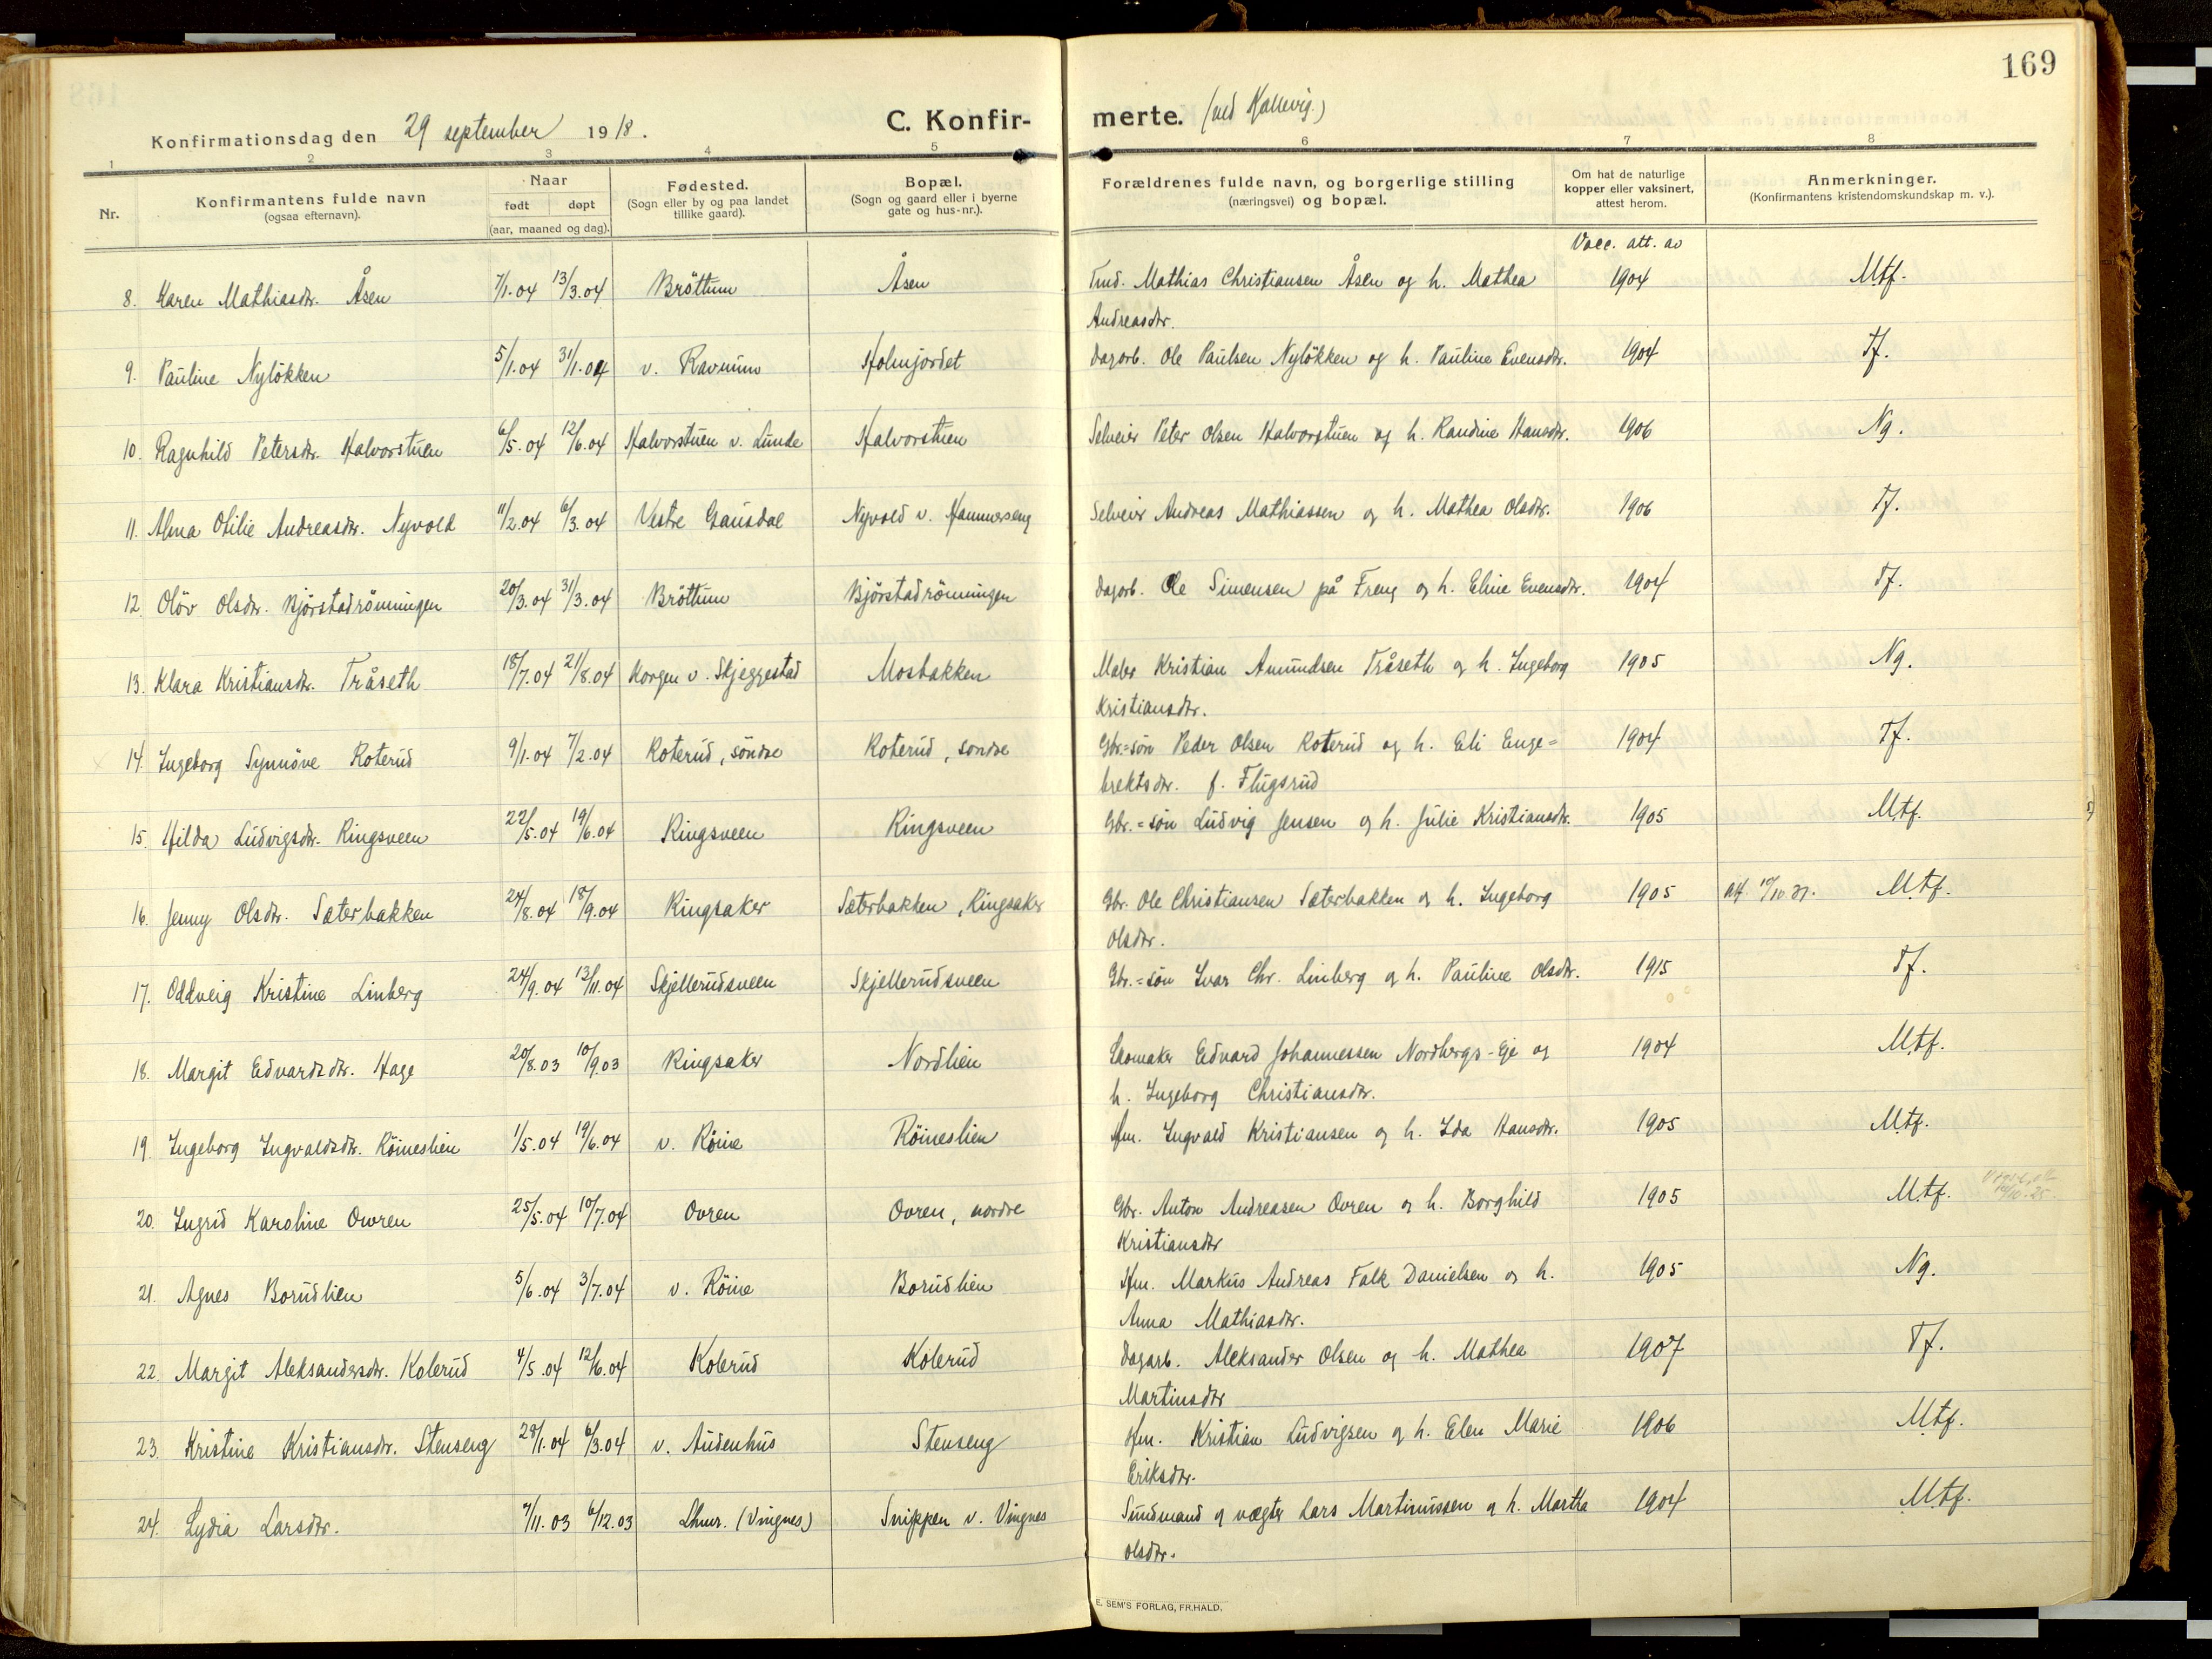 169
Konfirmationsdag den 29 september 1918. C. Konfirmerte. (ved Hallevig.)
1 2 3 4 5 6 7 8
Nr. Konfirmantens fulde navn (ogsaa efternavn). Naar født døpt (aar, maaned og dag). Fødested. (Sogn eller by og paa landet tillike gaard). Bopæl. (Sogn og gaard eller i byerne gate og hus-nr.). Forældrenes fulde navn, og borgerlige stilling (næringsvei) og bopæl. Om hat de naturlige kopper eller vaksinert, attest herom. Anmerkninger. (Konfirmantens kristendomskundskap m. v.).
Vacc. att. av
8. Karen Mathiasdtr. Åsen 7/1.04 13/3.04 Bröttum Åsen Tmd. Mathias Christiansen Åsen og h. Mathea 1904 Mtf.
Andreasdtr.
9. Pauline Nylökken 5/1.04 31/1.04 v. Ravnum Holmjordet Dagarb. Ole Paulsen Nylökken og h. Pauline Evensdtr. 1904 Tf.
10. Ragnhild Petersdtr. Halvorstuen 6/5.04 12/6.04 Halvorstuen v. Lunde Halvorstuen Selveier Peter Olsen Halvorstuen og h. Randine Hansdtr. 1906 Ng.
11. Alma Otilie Andreasdtr. Nyvold 11/2.04 6/3.04 Vestre Gausdal Nyvold v. Hammerseng Selveier Andreas Mathiassen og h. Mathea Olsdtr. 1906 Tf.
12. Olöv Olsdtr. Björstadrönningen 20/3.04 31/3.04 Bröttum Björstadrönningen Dagarb. Ole Simensen på Freng og h. Eline Evensdtr. 1904 Tf.
13. Klara Kristiansdtr. Tråseth 18/7.04 21/8.04 Korgen v. Skjeggestad Mosbakken Maler Kristian Amundsen Tråseth og h. Ingeborg 1905 Ng.
Kristiansdtr.
14. Ingeborg Synnöve Roterud 9/1.04 7/2.04 Roterud, söndre Roterud, sondre Gbr.=sön Peder Olsen Roterud og h. Eli Enge= 1904 Tf.
brektsdtr. f. Flugsrud
15. Hilda Ludvigsdtr. Ringsveen 22/5.04 19/6.04 Ringsveen Ringsveen Gbr.=sön Ludvig Jensen og h. Julie Kristiansdtr. 1905 Mtf.
16. Jenny Olsdtr. Sæterbakken 24/8.04 18/9.04 Ringsaker Sæterbakken, Ringsaker Gbr. Ole Christiansen Sæterbakken og h. Ingeborg 1905 Mtf.
Olsdtr.
17. Oddveig Kristine Linberg 24/9.04 13/11.04 Skjellerudsveen Skjellerudsveen Gbr.=sön Ivar Chr. Linberg og h. Pauline Olsdtr. 1915 Tf.
18. Margit Edvardsdtr. Hage 20/8.03 10/9.03 Ringsaker Nordlien Skomaker Edvard Johannessen Nordbergs-Eje og 1904 Mtf.
h. Ingeborg Christiansdtr.
19. Ingeborg Ingvaldsdtr. Röineslien 1/5.04 19/6.04 v. Röine Röineslien Hm. Ingvald Kristiansen og h. Ida Hansdtr. 1905 Mtf.
20. Ingrid Karoline Owren 25/5.04 10/7.04 Ovren Ovren, nordre Gbr. Anton Andreasen Ovren og h. Borghild 1905 Mtf.
Kristiansdtr
21. Agnes Borudlien 5/6.04 3/7.04 v. Röine Borudlien Hm. Markus Andreas Falk Danielsen og h. 1905 Ng.
Anna Mathiasdtr.
22. Margit Aleksandersdtr. Kolerud 4/5.04 12/6.04 Kolerud Kolerud Dagarb. Aleksander Olsen og h. Mathea 1907 Tf.
Martinsdtr
23. Kristine Kristiansdtr. Stenseng 28/1.04 6/3.04 v. Audenhus Stenseng Hm. Kristian Ludvigsen og h. Elen Marie 1906 Mtf.
Eriksdtr.
24. Lydia Larsdtr. 7/11.03 6/12.03 Lhmr. (Vingnes) Snippen v. Vingnes Sundmand og vægter Lars Martinussen og h. Martha 1904 Mtf.
Olsdtr.
E. SEM'S FORLAG, FR.HALD.